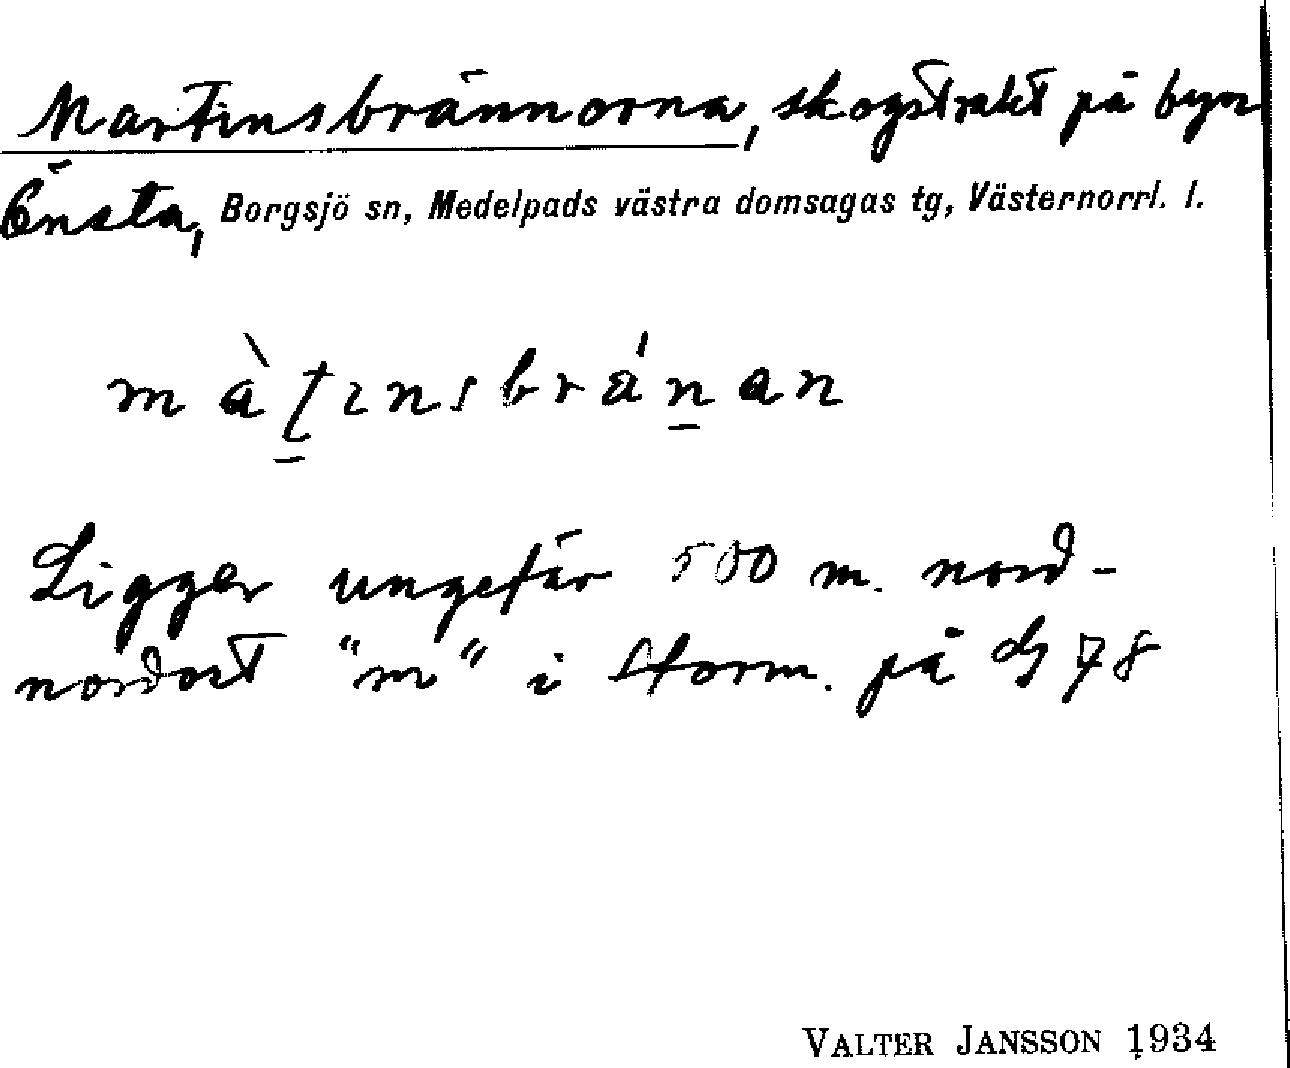 Martinsbrännorna, skogstrakt på byn
Önsta, Borgsjö sn, Medelpads västra domsagas tg, Västernorrl. l.
Ligger ungefär 500 m. nord-
nordost "m" i Storm. på G 78
VALTER JANSSON 1934